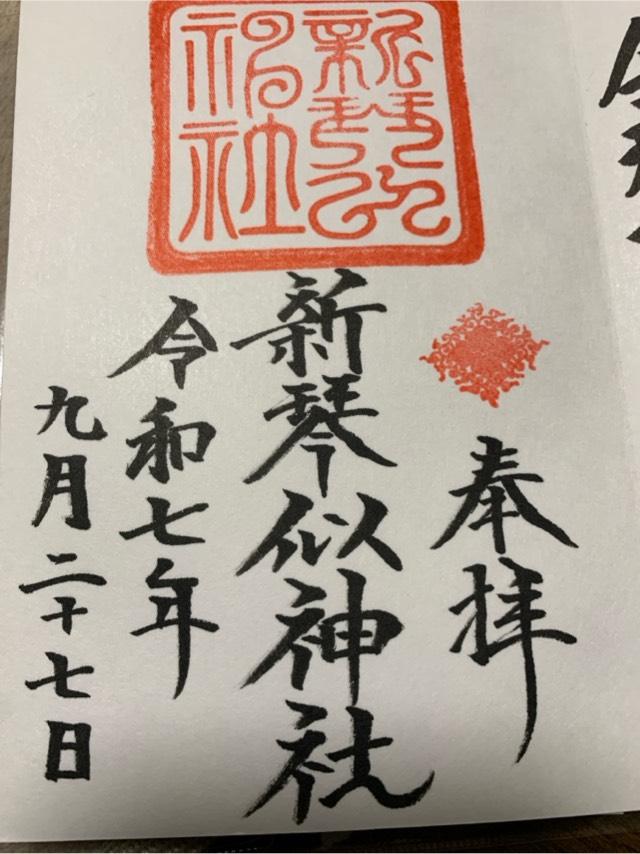 奉拝
新琴似神社
令和七年
九月二十七日
新琴似
神社